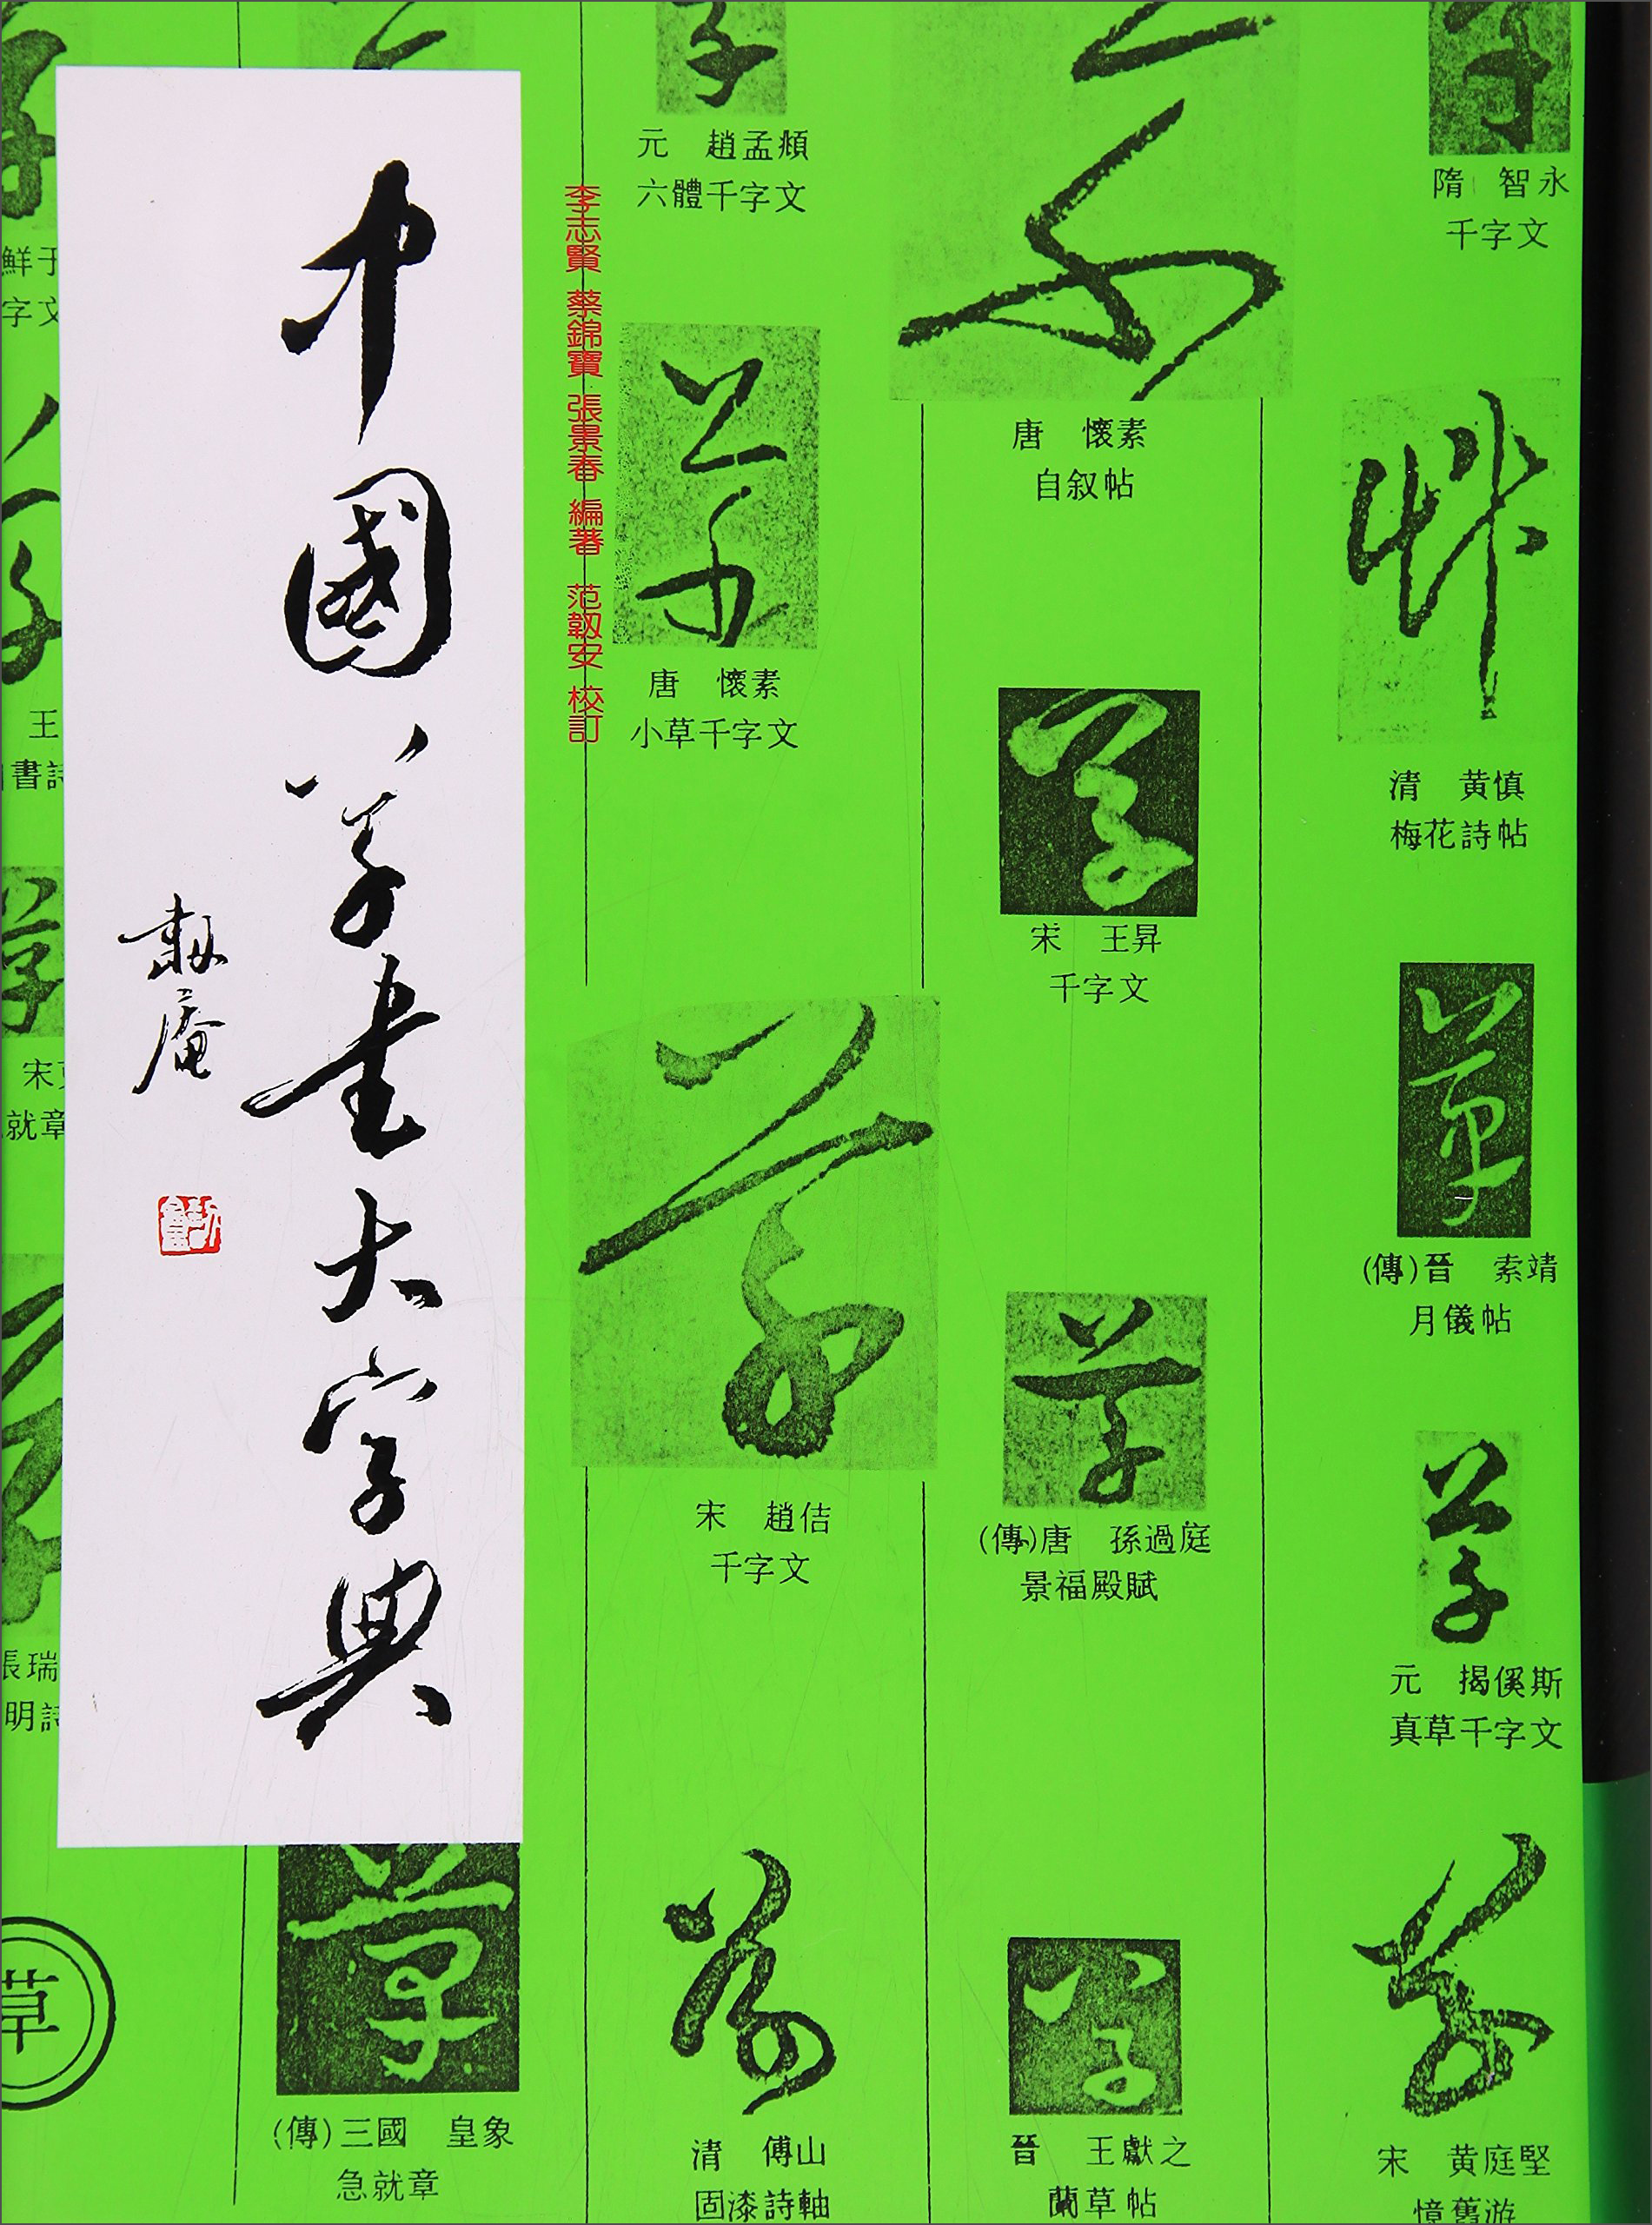 中國草書大字典
韌庵
李志賢 蔡錦寶 張景春 編著 范韌安 校訂
隋 智永
千字文
艸
清 黄慎
梅花詩帖
草
(傳)晉 索靖
月儀帖
草
元 揭傒斯
真草千字文
草
宋 黄庭堅
憶舊游
草
唐 懷素
自叙帖
草
宋 王昇
千字文
草
(傳)唐 孫過庭
景福殿賦
草
晉 王獻之
蘭草帖
草
元 趙孟頫
六體千字文
草
唐 懷素
小草千字文
草
宋 趙佶
千字文
草
清 傅山
固漆詩軸
草
(傳)三國 皇象
急就章
鮮于
字文
王
書詩
宋克
就章
張瑞
明詩
草